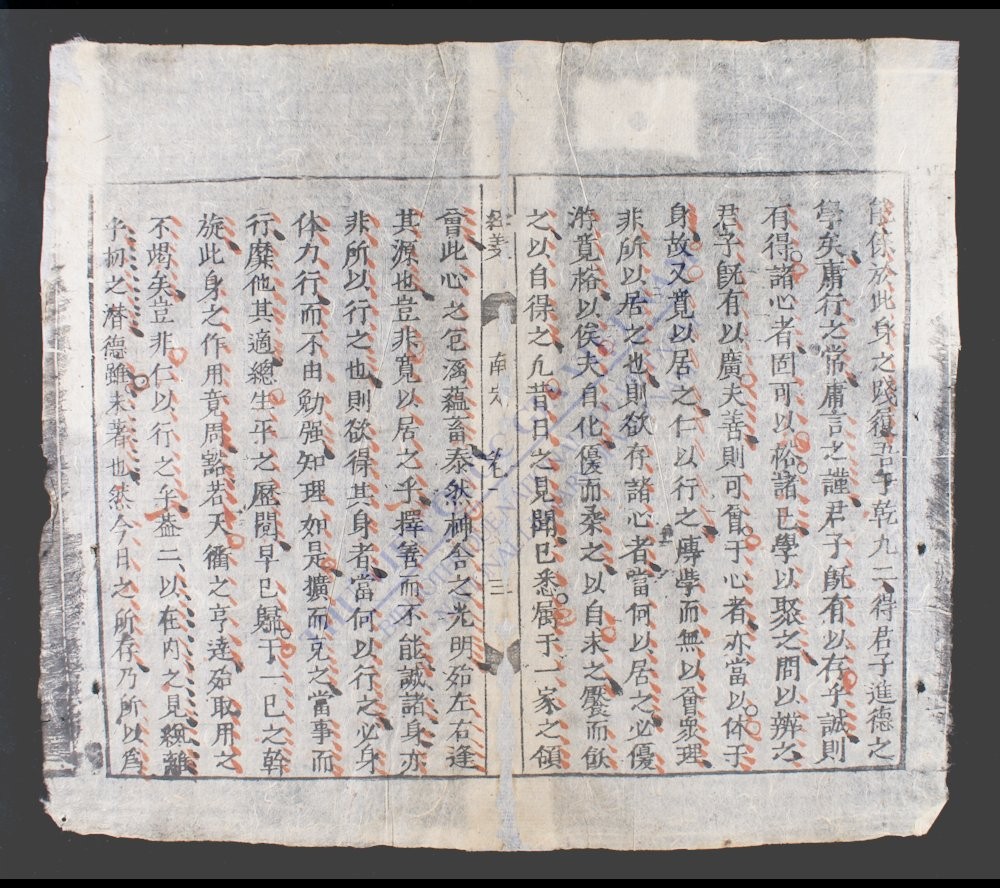 能体於此身之踐履吾于乾九二待君子進德之
學矣庸行之常庸言之謹君子旣有以存乎誠則
有得諸心者固可以裕諸己學以聚之問以辨之
君子旣有以廣夫善則可會于心者亦當以体于
身故又寬以居之仁以行之傳學而無以會衆理
非所以居之也則欲有諸心者當何以居之必優
游寬裕以俟夫自化優而柔之以自求之饜而飫
之以自得之凢昔日之見聞已悉屬于一家之領
經義
南㝎
卷一
三
會此心之包涵蘊畜泰然神舍之光明殆左右逢
其源也豈非寬以居之乎擇善而不能誠諸身亦
非所以行之也則欲得其身者當何以行之必身
体力行而不由勉强知理如是擴而充之當事而
行靡他其適總生平之歷閱早已歸于一己之幹
旋此身之作用竟周豁若天衢之亨達殆取用之
不竭矣豈非仁以行之乎葢二以在內之見䋲離
乎初之潜德雖未著也然今日之所存乃所以爲